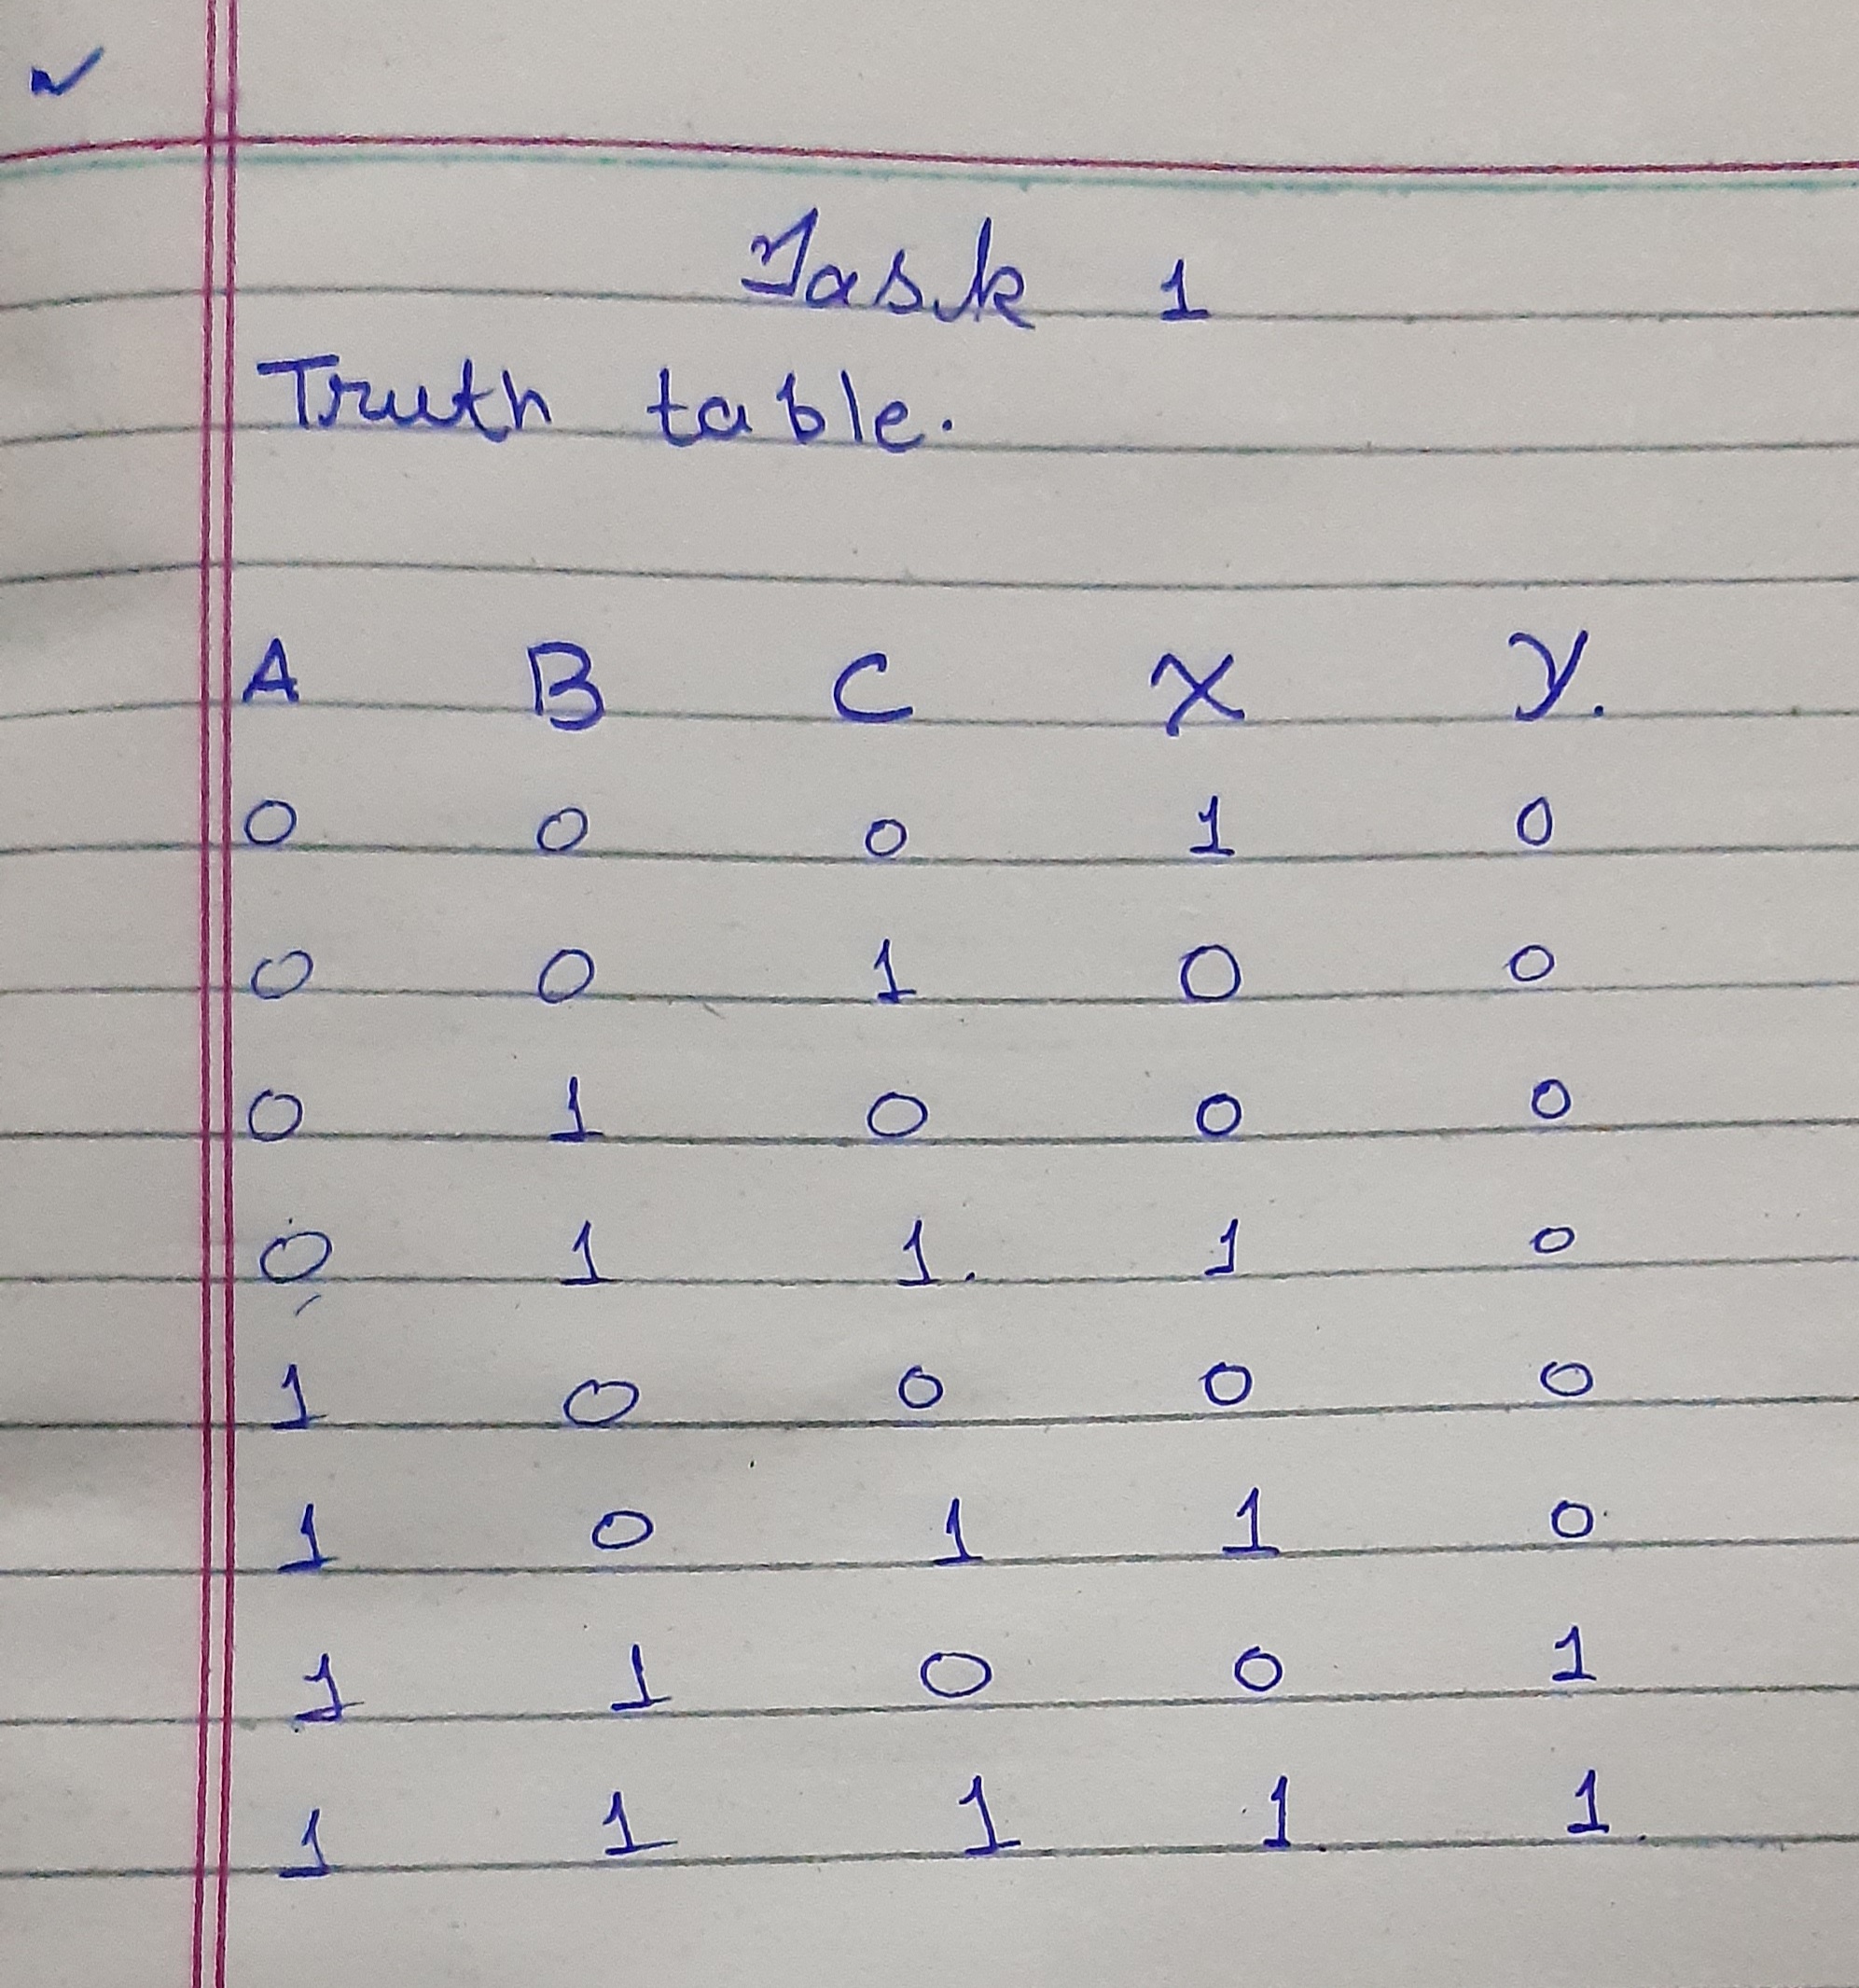 Task 1
Truth table.
A B C X Y.
0 0 0 1 0
0 0 1 0 0
0 1 0 0 0
0 1 1. 1 0
1 0 0 0 0
1 0 1 1 0
1 1 0 0 1
1 1 1 1. 1.